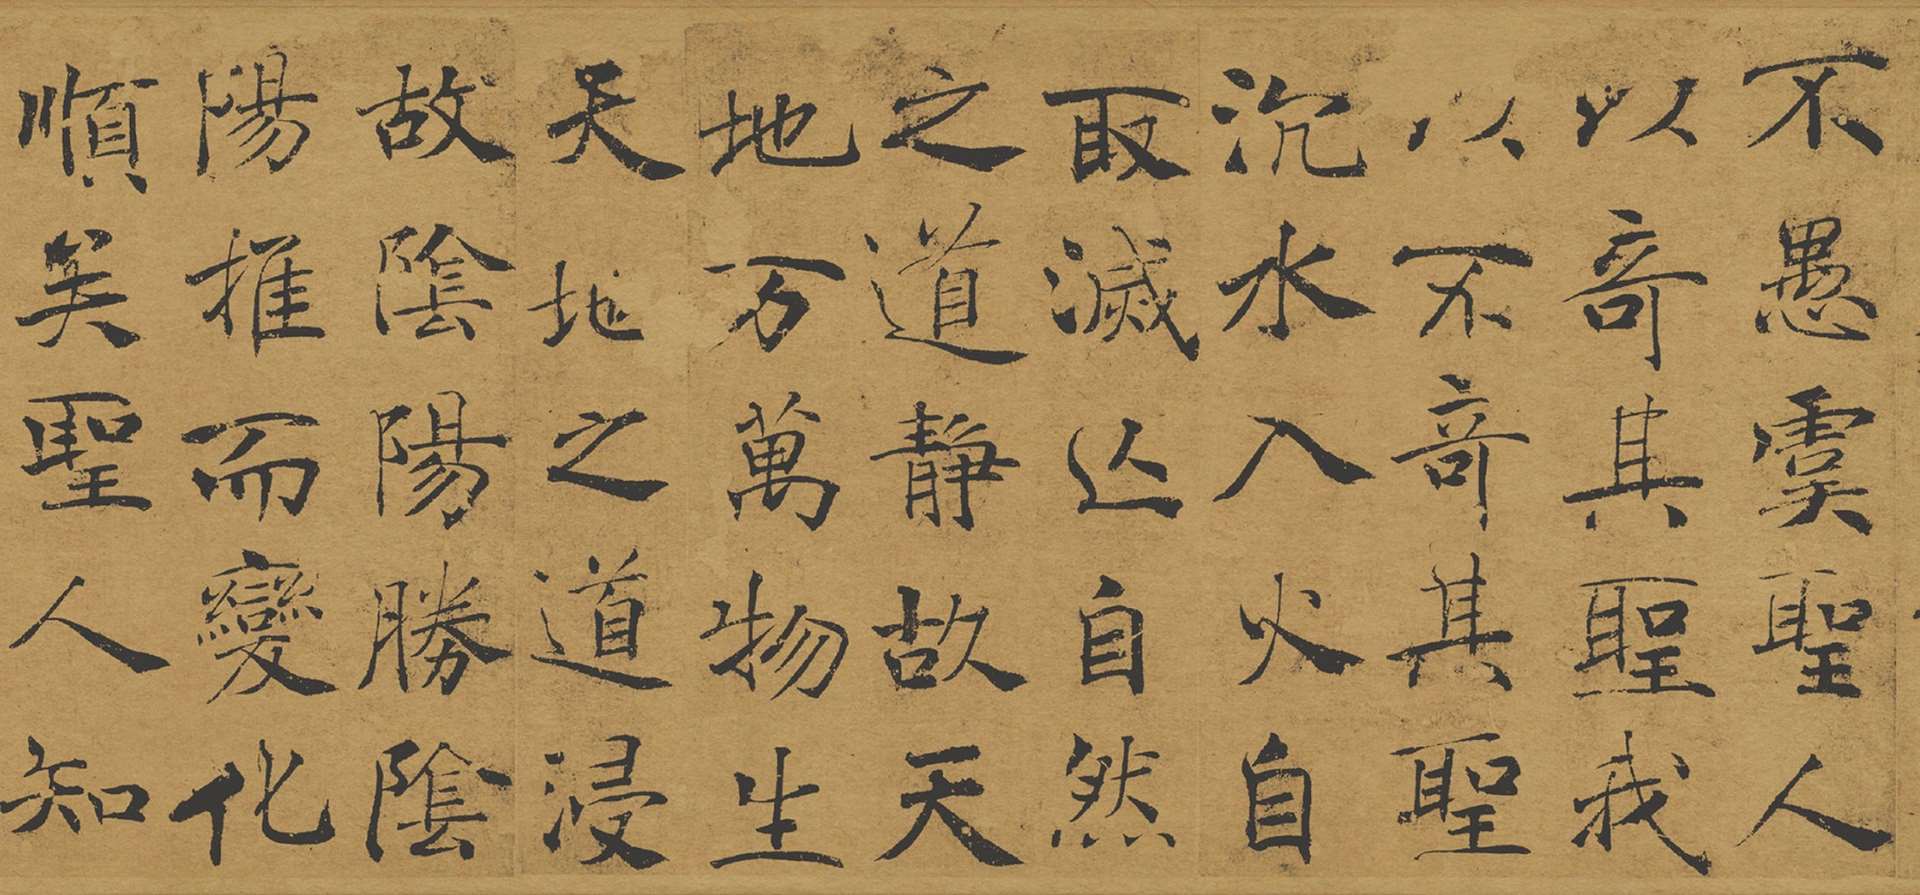 不愚虞聖人
以竒其聖我
以不竒其聖
沉水入火自
取滅亾自然
之道静故天
地万萬物生
天地之道浸
故陰陽勝陰
陽推而變化
順矣聖人知